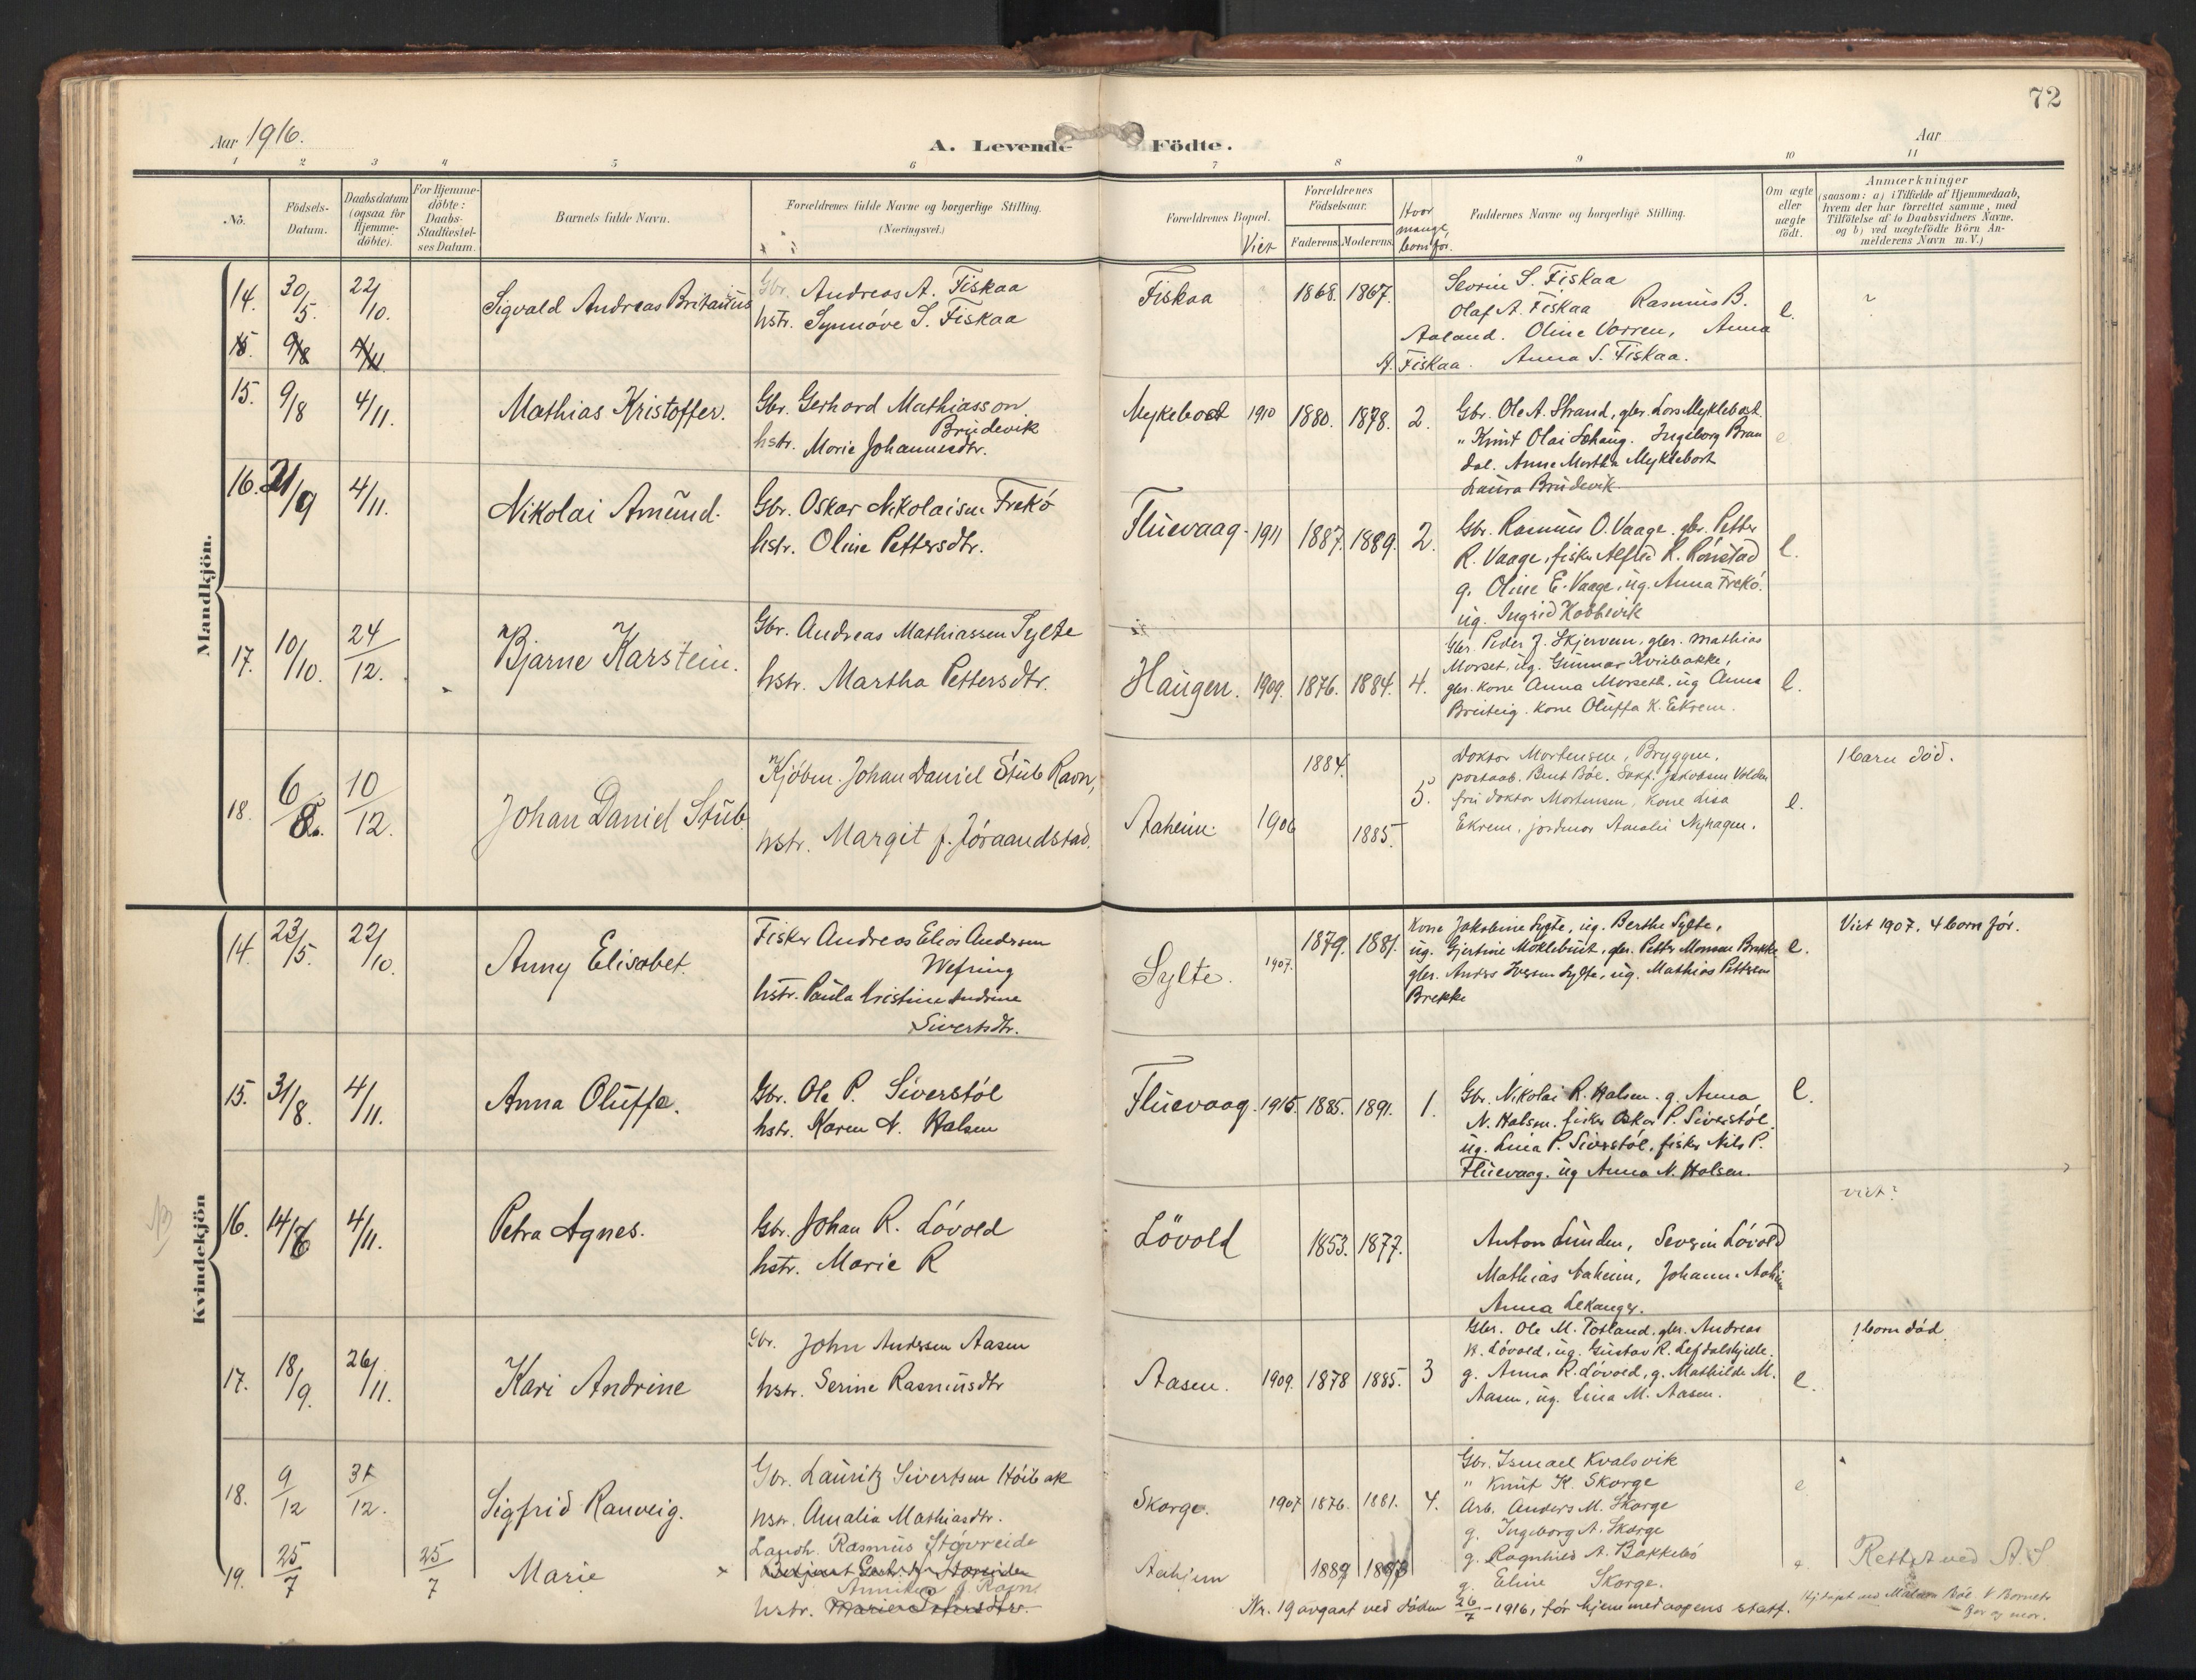 72
Aar 1916.
A. Levende Födte.
Aar
1 2 3 4 5 6 7 8 9 10 11
Nö.
Födsels-Datum.
Daabsdatum (ogsaa for Hjemme-döbte).
For Hjemme-döbte: Daabs-Stadfæstel-ses Datum.
Barnets fulde Navn.
Forældrenes fulde Navne og borgerlige Stilling.
(Næringsvei.)
Forældrenes Bopæl.
Viet
Forældrenes Födselsaar.
Faderens. Moderens.
Hvor mange born för.
Faddernes Navne og borgerlige Stilling.
Om ægte eller uægte födt.
Anmærkninger
(saasom: a) i Tilfælde af Hjemmedaab, hvem der har forrettet samme, med Tilföielse af to Daabsvidners Navne. og b) ved uægtefödte Börn An-melderens Navn m.V.)
Mandkjön.
14. 30/5. 22/10. Sigvald Andreas
Gbr. Andreas A. Fiskaa
hstr. Synnöve S. Fiskaa
Fiskaa 1868. 1867.
Severin S. Fiskaa
Olaf A. Fiskaa Rasmus B.
Aaland. Oline Vorren, Anna
A. Fiskaa. Anna S. Fiskaa.
e.
?
15. 9/8 4/11.
15. 9/8 4/11. Mathias Kristoffer.
Gbr. Gerhard Mathiasson
Brudevik
hstr. Marie Johannesdtr.
Myklebost 1910 1880. 1878. 2.
Gbr. Ole A. Strand, gbr. Lars Myklebost.
" Knut Olai Sohaug. Ingeborg Bran
dal. Anne Martha Myklebost
Laura Brudevik
e.
16. 21/9 4/11. Nikolai Amund.
Gbr. Oskar Nikolaisen Frekö
hstr. Oline Pettersdtr.
Fluevaag 1911 1887. 1889. 2.
Gbr. Rasmus O. Vaage. gbr. Petter
R. Vaage, fisker Alfred R. Rönstad
g. Oline E. Vaage, ug. Anna Frekö.
ug. Ingrid Hobbevik
e.
17. 10/10. 24/12. Bjarne Karstein.
Gbr. Andreas Mathiassen Sylte
hstr. Martha Pettersdtr.
Haugen. 1909. 1876. 1884. 4.
Gbr. Peder J. Skjerven, gbr. Mathias
Morset, ug. Gunnar Kviebakke,
gbr. kone Anna Morseth. ug Anna
Breiteig. kone Oluffa K. Ekrem.
e.
18. 6/8. 10/12. Johan Daniel Stub
Kjöbm. Johan Daniel Stub Ravn,
hstr. Margit f. Jöraandstad.
Aaheim. 1906 1884. 1885. 5.
Doktor Mortensen, Bryggen,
postaab. Bent Böe. Sakf. Jakobsen Volden
fru doktor Mortensen, kone Lisa
Ekrem, jordmor Amalie Nyhagen.
e.
1 barn död.
Kvindekjön
14. 23/5. 22/10. Anny Elisabet.
Fisker Andreas Elias Andersen
Wefring
hstr. Paula Kristine Andrine
Sivertsdtr.
Sylte. 1907. 1879. 1881.
Kone Jakobine Sylte, ug. Berthe Sylte,
ug. Gjertine Möklebust, gbr. Petter Monsen Brekke
gbr. Anders Iversen Sylte, ug. Mathias Pettersen
Brekke
e.
Viet 1907. 4 born för.
15. 31/8. 4/11. Anna Oluffa.
Gbr. Ole P. Siverstöl
hstr. Karen N. Halsen
Fluevaag. 1915. 1885. 1891. 1.
Gbr. Nikolai R. Halsen. g. Anna
N. Halsen. fisker Oskar P. Siverstöl.
ug. Lina P. Siverstöl, fisker Nils P.
Fluevaag. ug Anna N. Halsen.
e.
16. 14/6 4/11. Petra Agnes.
Gbr. Johan R. Lövold
hstr. Marie R
Lövold 1853. 1877.
Anton Lunden, Severin Lövold
Mathias Aaheim, Johann. Aaheim
Anna Lekanger.
viet?
17. 18/9. 26/11. Kari Andrine
Gbr. John Andersen Aasen
hstr. Serine Rasmusdtr
Aasen. 1909. 1878 1885. 3
Gbr. Ole M. Totland, gbr. Andreas
R. Lövold, ug. Gustav R. Lefdalskjelle.
g. Anna R. Lövold, g. Mathilde M.
Aasen, ug. Lina M. Aasen.
e.
1 born död.
18. 9/12 31/12. Sigfrid Ranveig.
Gbr. Lauritz Sivertsen Höibak
hstr. Amalia Mathiasdtr.
Skorge. 1907 1876. 1881. 4.
Gbr. Ismael Kvalsvik
" Knut K. Skorge
Arb. Anders M. Skorge
g. Ingeborg A. Skorge
g. Ragnhild A. Bakkebö
g. Eline Skorge.
e.
19. 25/7 25/7 Marie
Landh. Rasmus Stövreide
Annikken f. Ravn
hstr.
Aahjem 1889
e.
Rettet ved A. S
Nr. 19 avgaat ved döden 26/7-1916, för hjemmedaapens stadf.